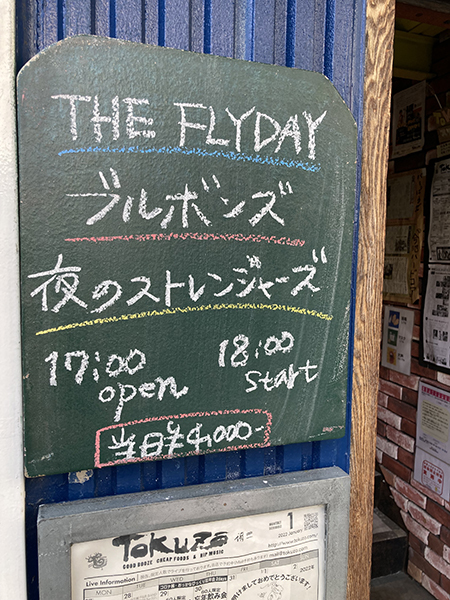 THE FLYDAY
ブルボンズ
夜のストレンジャーズ
17:00 open
18:00 start
当日¥4,000-
TOKUZO
GOOD BOOZE CHEAP FOODS & HIP MUSIC
1
2022 January
Live Information
MON
WED
SAT